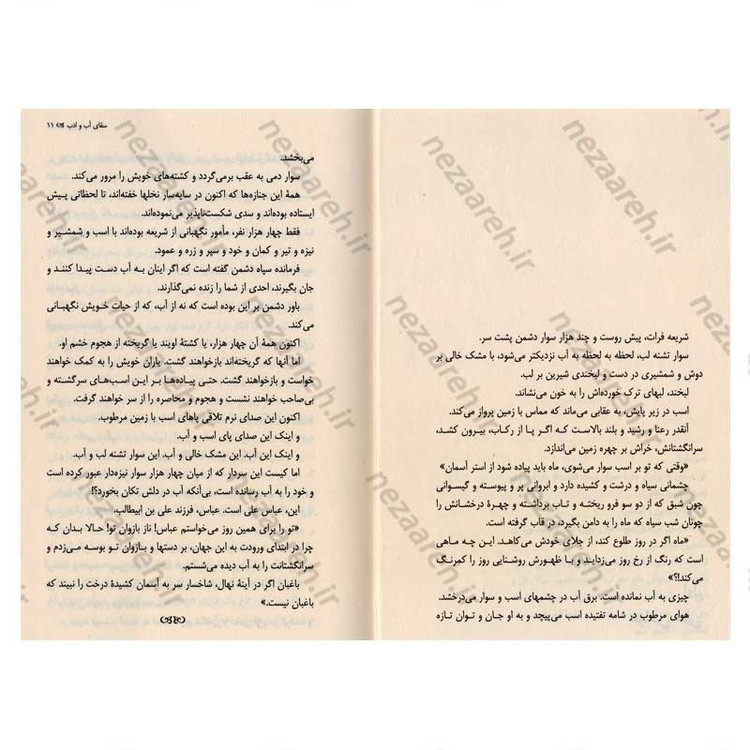 شریعه فرات، پیش روست و چند هزار سوار دشمن پشت سر.
سوار تشنه لب، لحظه به لحظه به آب نزدیکتر می‌شود، با مشک خالی بر
دوش و شمشیری در دست و لبخندی شیرین بر لب.
لبخند، لبهای ترک خورده‌اش را به خون می‌نشاند.
اسب در زیر پایش، به عقابی می‌ماند که مماس با زمین پرواز می‌کند.
آنقدر رعنا و رشید و بلند بالاست کـه اگـر پـا از رکـاب، بیـرون کشـد،
سرانگشتانش، خراش بر چهره زمین می‌اندازد.
«وقتی که تو بر اسب سوار می‌شوی، ماه باید پیاده شود از استر آسمان»
چشمانی سیاه و درشت و کشیده دارد و ابروانی پر و پیوسته و گیسوانی
چون شبق که از دو سو فرو ریختـه و تـاب برداشتـه و چهـرهٔ درخشـانش را
چونان شب سیاه که ماه را به دامن بگیرد، در قاب گرفته است.
«ماه اگر در روز طلوع کند، از جلای خودش می‌کاهـد. ایـن چـه ماهـی
است که رنگ از رخ روز می‌زدایـد و بـا ظهـورش روشنـایی روز را کمرنـگ
می‌کند!؟»
چیزی به آب نمانده است. برق آب در چشمهای اسب و سوار می‌درخشد.
هوای مرطوب در شامه تفتیده اسب می‌پیچد و به او جـان و تـوان تـازه
سقای آب و ادب ۱۱
می‌بخشد.
سوار دمی به عقب برمی‌گردد و کشته‌های خویش را مرور می‌کند.
همهٔ این جنازه‌ها که اکنون در سایه‌سار نخلها خفته‌اند، تا لحظاتی پیـش
ایستاده بوده‌اند و سدی شکست‌ناپذیر می‌نموده‌اند.
فقط چهار هزار نفر، مأمور نگهبانی از شریعه بوده‌اند با اسب و شمشـیر و
نیزه و تیر و کمان و خود و سپر و زره و عمود.
فرمانده سپاه دشمن گفته است که اگر اینان به آب دسـت پیـدا کننـد و
جان بگیرند، احدی از شما را زنده نمی‌گذارند.
باور دشمن بر این بوده است که نه از آب، که از حیات خـویش نگهبـانی
می‌کند.
اکنون همهٔ آن چهار هزار، یا کشتهٔ اویند یا گریخته از هجوم خشم او.
اما آنها که گریخته‌اند بازخواهند گشت. یاران خویش را به کمک خواهند
خواست و بازخواهند گشت. حتـی پیاده‌هـا بـر ایـن اسـب‌های سرگشتـه و
بی‌صاحب خواهند نشست و هجوم و محاصره را از سر خواهند گرفت.
اکنون این صدای نرم تلاقی پاهای اسب با زمین مرطوب.
و اینک این صدای پای اسب و آب.
و اینک این آب. این مشک خالی و آب. این سوار تشنه لب و آب.
اما کیست این سردار که از میان چهار هزار سوار نیزه‌دار عبور کرده است
و خود را به آب رسانده است، بی‌آنکه آب در دلش تکان بخورد؟!
این، عباس علی است. عباس، فرزند علی بن ابیطالب.
«تو را برای همین روز می‌خواستم عباس! ناز بازوان تو! حـالا بـدان کـه
چرا در ابتدای ورودت به این جهان، بر دستها و بازوان تو بوسه می‌زدم و
سرانگشتانت را به آب دیده می‌شستم.
باغبان اگر در آینهٔ نهال، شاخسار سر به آسمان کشیدهٔ درخت را نبیند که
باغبان نیست.»
nezaareh.ir
nezaareh.ir
nezaareh.ir
nezaareh.ir
nezaareh.ir
nezaareh.ir